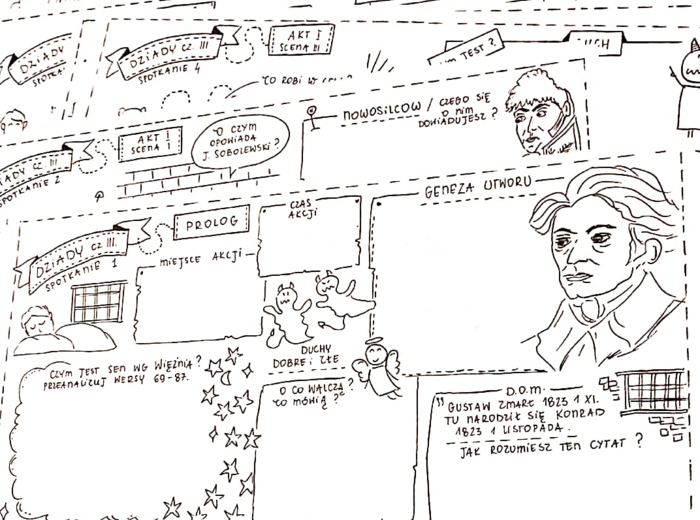 DZIADY
SPOTKA
DZIADY CZ. III
SPOTKANIE 4
AKT I
SCENA III
CO ROBI W
TEST ?
DZIADY CZ. III
SPOTKANIE 2
AKT I
SCENA I
O CZYM
OPOWIADA
J. SOBOLEWSKI?
NOWOSILCOW / CZEGO SIĘ
O NIM
DOWIADUJESZ ?
DZIADY CZ III.
SPOTKANIE 1
PROLOG
MIEJSCE AKCJI
CZAS
AKCJI
GENEZA UTWORU
DUCHY
DOBRE i ZŁE
CZYM JEST SEN WG WIĘŹNIA?
PRZEANALIZUJ WERSY 69-87.
O CO WALCZĄ?
CO MÓWIĄ ?
D.O.M.
„ GUSTAW ZMARŁ 1823 1 XI.
TU NARODZIŁ SIĘ KONRAD
1823 1 LISTOPADA.
JAK ROZUMIESZ TEN CYTAT ?